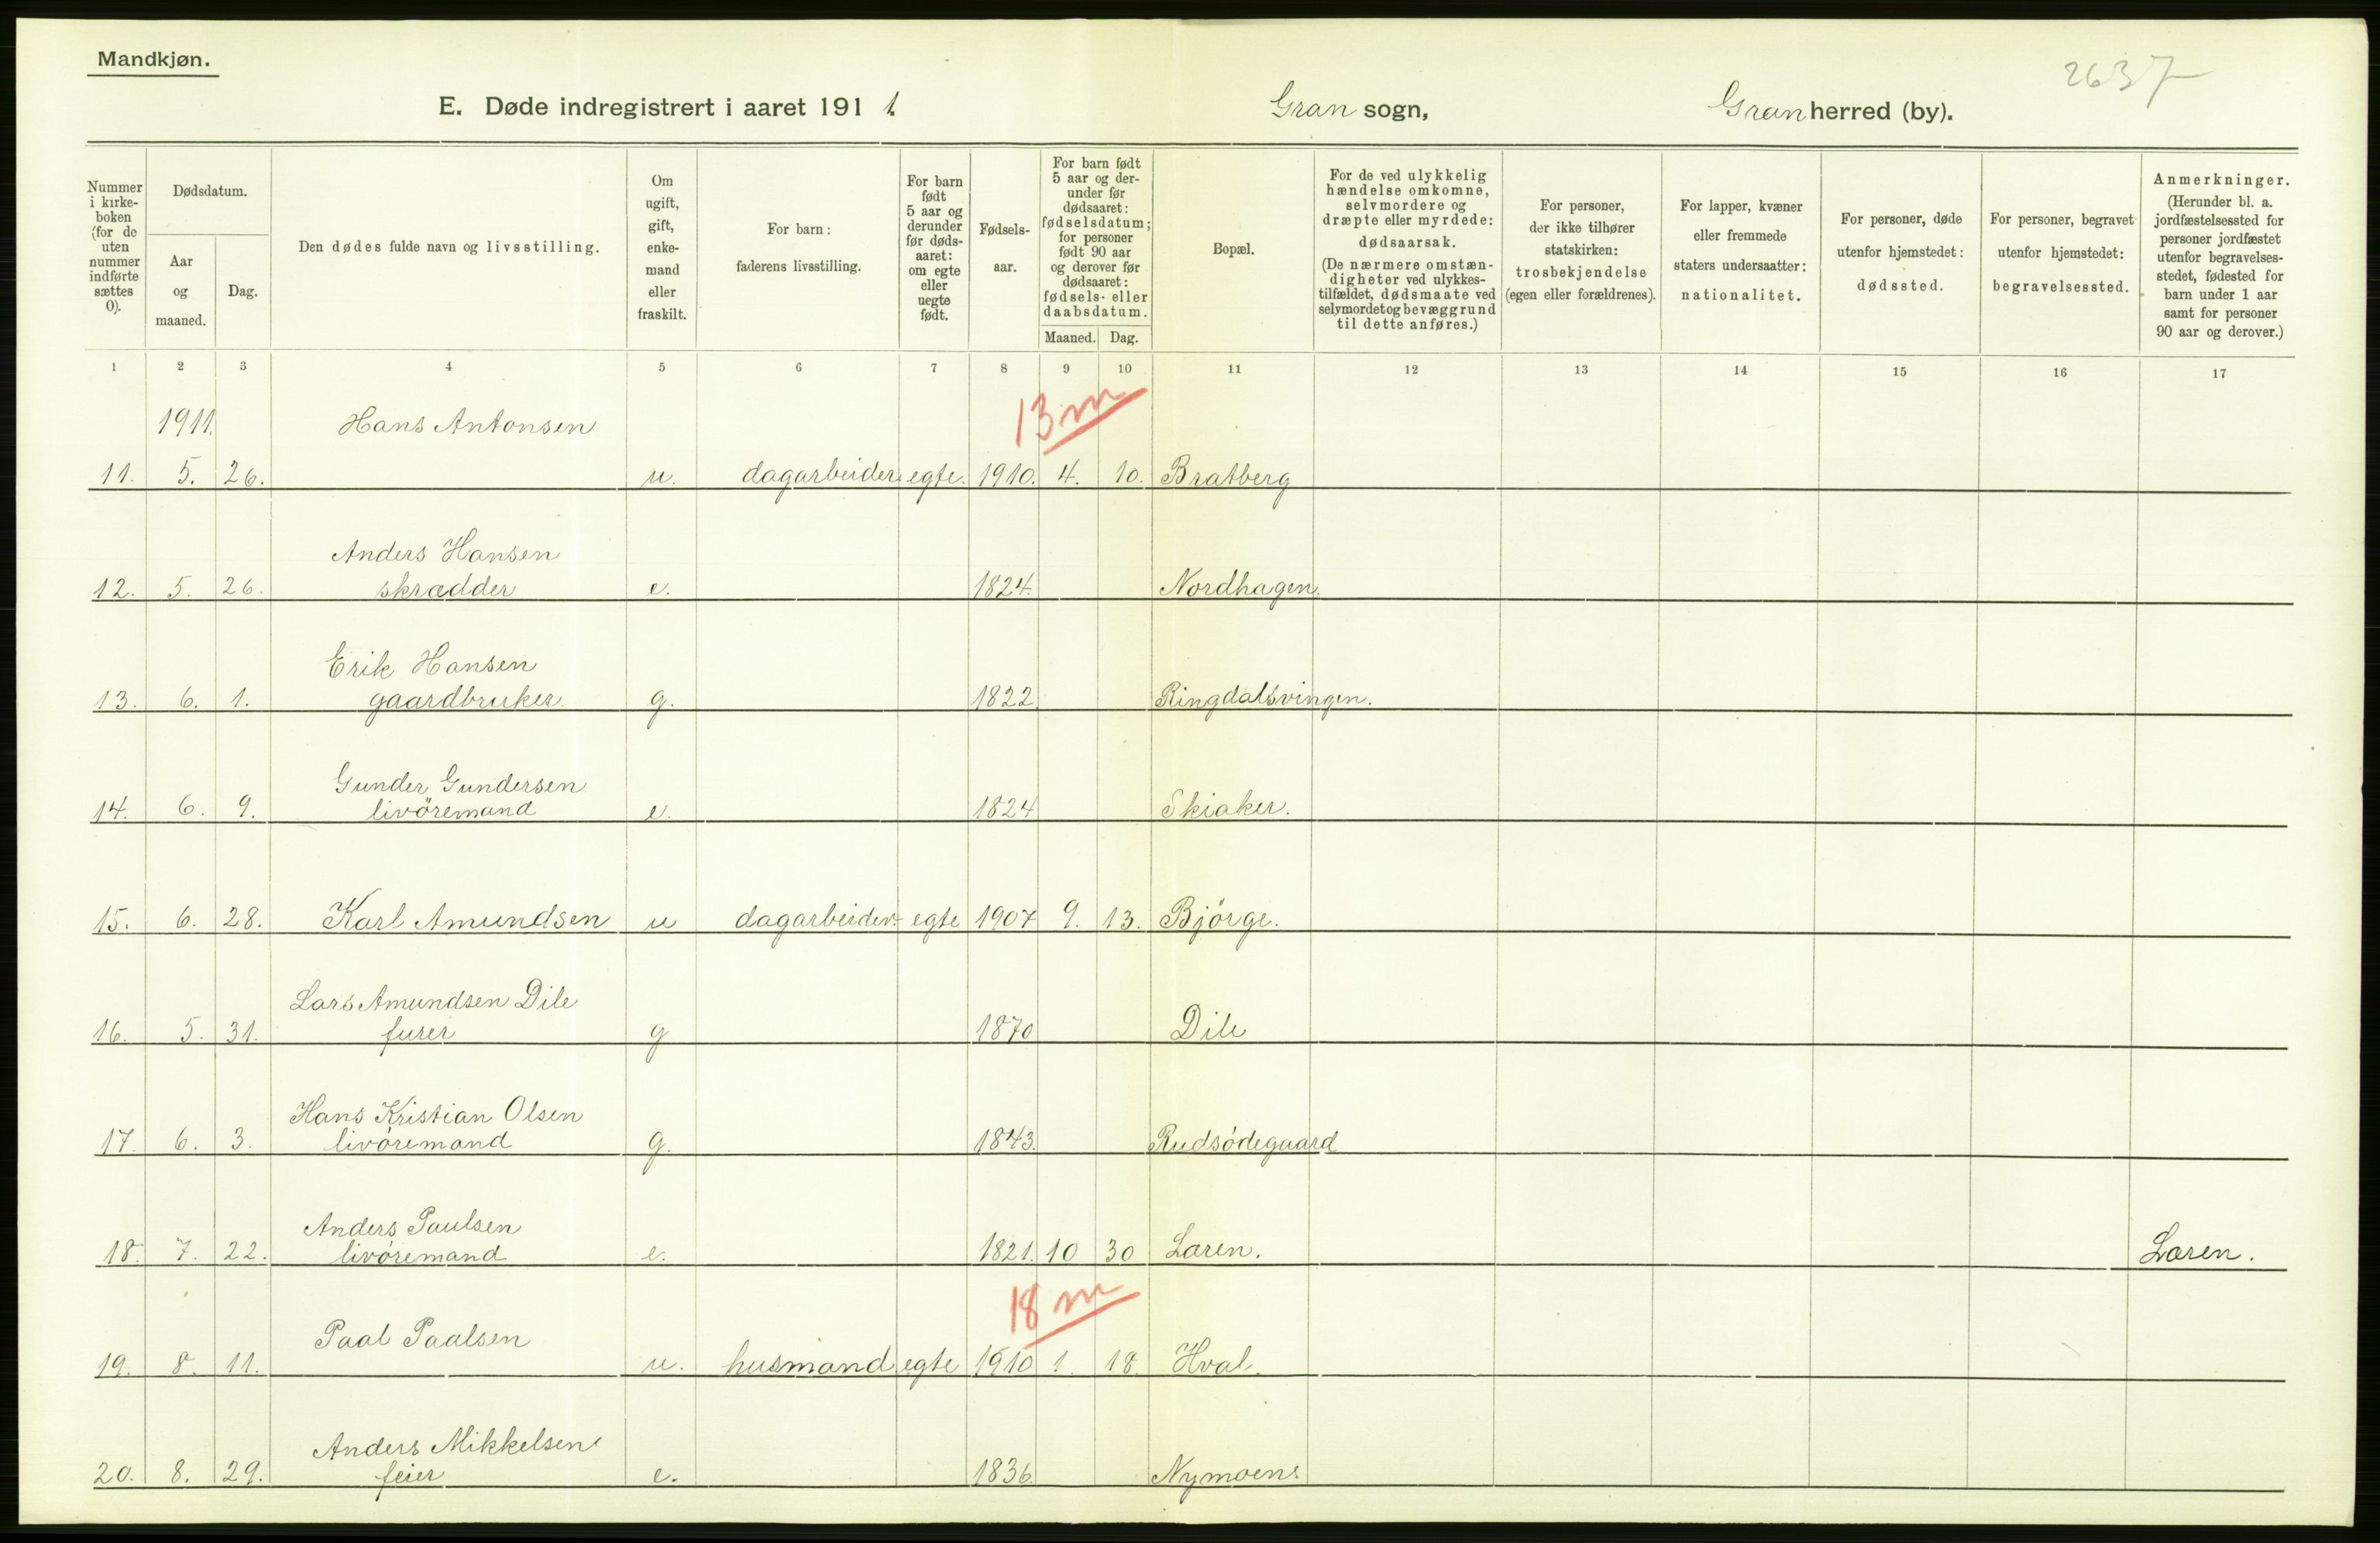 Mandkjøn.
2637
E. Døde indregistrert i aaret 1911.
Gran sogn,
Gran herred (by).
Nummer i kirke-boken (for de uten nummer indførte sættes 0).
Dødsdatum.
Aar og maaned.
Dag.
Den dødes fulde navn og livsstilling.
Om ugift, gift, enke-mand eller fraskilt.
For barn: faderens livsstilling.
For barn født 5 aar og derunder før døds-aaret: om egte eller uegte født.
Fødsels-aar.
For barn født 5 aar og der-under før dødsaaret: fødselsdatum; for personer født 90 aar og derover før dødsaaret: fødsels- eller daabsdatum.
Maaned. Dag.
Bopæl.
For de ved ulykkelig hændelse omkomne, selvmordere og dræpte eller myrdede: dødsaarsak. (De nærmere omstæn-digheter ved ulykkes-tilfældet, dødsmaate ved selvmordet og bevæggrund til dette anføres.)
For personer, der ikke tilhører statskirken: trosbekjendelse (egen eller forældrenes).
For lapper, kvæner eller fremmede staters undersaatter: nationalitet.
For personer, døde utenfor hjemstedet: dødssted.
For personer, begravet utenfor hjemstedet: begravelsessted.
Anmerkninger. (Herunder bl. a. jordfæstelsessted for personer jordfæstet utenfor begravelses-stedet, fødested for barn under 1 aar samt for personer 90 aar og derover.)
1 2 3 4 5 6 7 8 9 10 11 12 13 14 15 16 17
1911. Hans Antonsen 13 m
11. 5. 26. u. dagarbeider egte. 1910. 4. 10. Bratberg
Anders Hansen
12. 5. 26. skrædder e. 1824. Nordhagen.
Erik Hansen
13. 6. 1. gaardbruker. g. 1822. Ringdalsvingen.
Gunder Gundersen
14. 6. 9. livöremand e. 1824 Skiaker.
15. 6. 28. Karl Amundsen u dagarbeider. egte 1907 9. 13. Bjørge.
Lars Amundsen Dile
16. 5. 31. furer g 1870 Dile
Hans Kristian Olsen
17. 6. 3. livöremand g. 1843. Rudsødegaard
Anders Paulsen
18. 7. 22. livöremand e. 1821. 10 30 Læren. Læren.
18 m
Paal Paalsen
19. 8. 11. u. husmand egte 1910 1. 18. Hval.
Anders Mikkelsen
20. 8. 29. feier e. 1836. Nymoen.